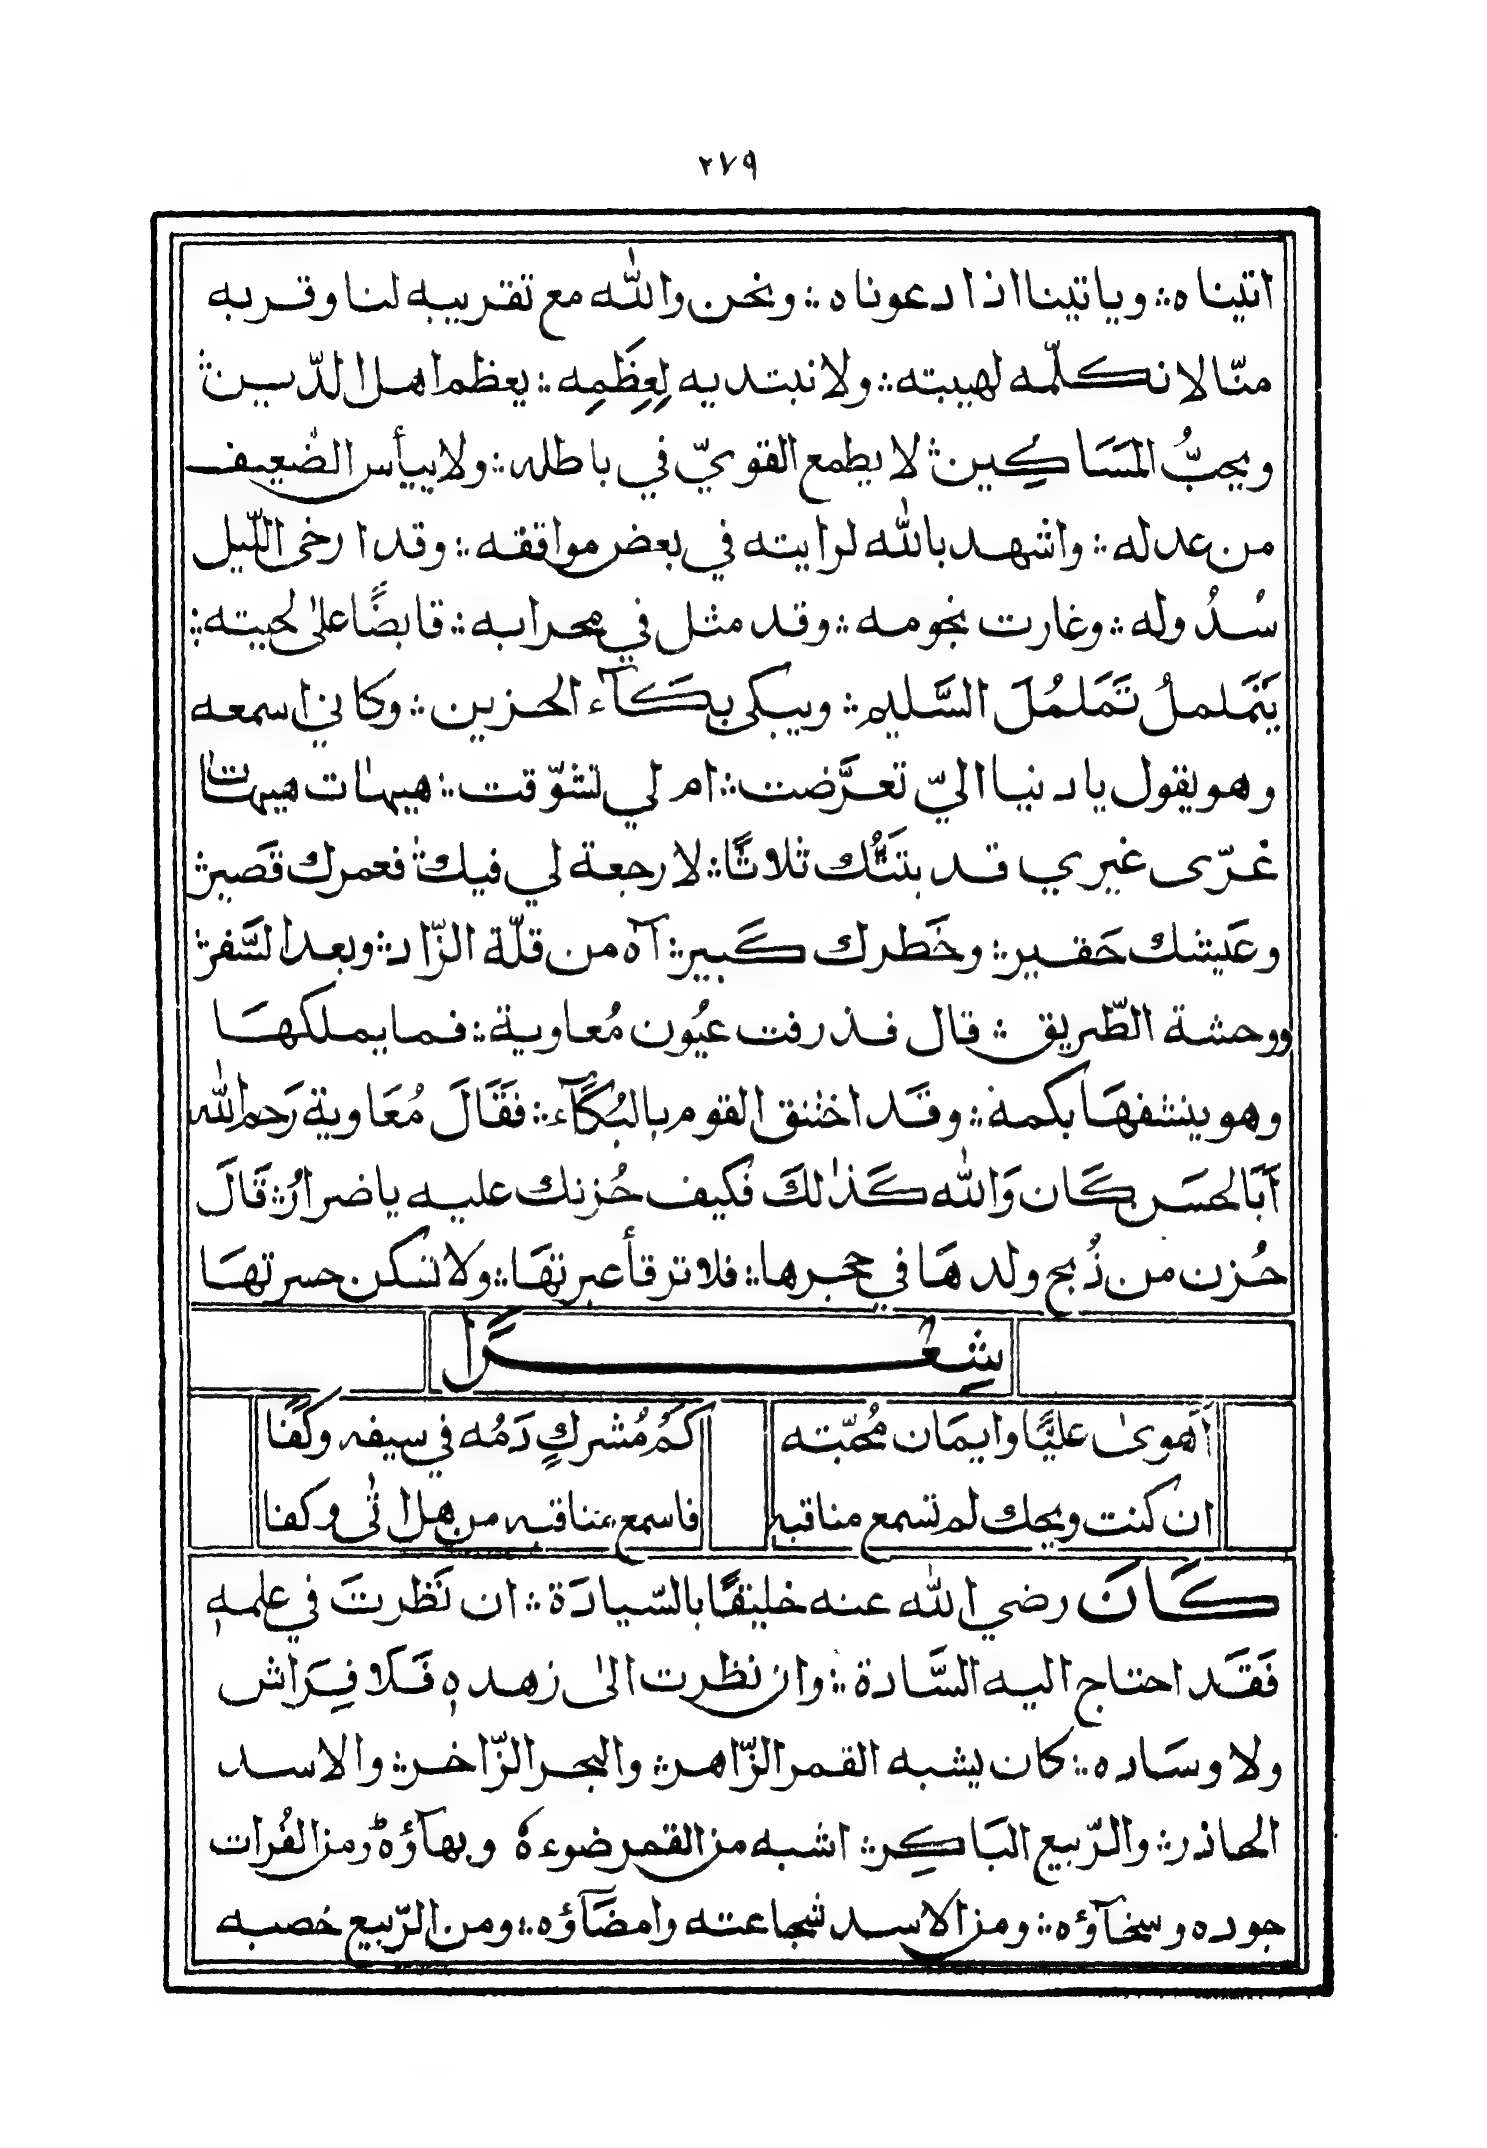 ٢٧٩
اتيناه ؞ ويأتينا اذا دعوناه ؞ ونحن والله مع تقريبه لنا وقربه
منّا لانكلّمه لهيبته ؞ ولا نبتديه لِعِظَمِه ؞ يعظم اهل الدّين ؞
ويحبُّ المَسَاكِين ؞ لا يطمع القويّ في باطله ؞ ولا ييأس الضّعيف
من عدله ؞ واشهد بالله لرايته في بعض مواقفه ؞ وقد ارخى اللّيل
سُدُوله ؞ وغارت نجومه ؞ وقد مثل في محرابه ؞ قابضًا على لحيته ؞
يَتَمَلملُ تَمَلمُلَ السَّليم ؞ ويبكى بكَآء الحزين ؞ وكاني اسمعه
وهو يقول يا دنيا اليّ تعرَّضت ؞ ام لي تشوّقت ؞ هيهات هيهات
غرّى غيري قد بتتُّك ثلاثًا ؞ لا رجعة لي فيك ؞ فعمرك قَصير ؞
وعَيشك حَقير ؞ وخَطرك كَبير ؞ آه من قلّة الزّاد ؞ وبعد السَّفر ؞
ووحشة الطّريق ؞ قال فذرفت عيُون مُعاوية ؞ فما يملكهَا
وهو ينشفهَا بكمه ؞ وقَد اختنق القوم بالبُكَآء ؞ فقَالَ مُعَاوية رَحم الله
اَبَا لحسَن كَان وَالله كَذٰلكَ فكَيف حُزنك عليه يا ضرارُ ؞ قَالَ
حُزن من ذُبح ولدهَا في حجرها ؞ فلا ترقأ عبرتهَا ؞ ولا تسكن حسرتهَا
شِعْرًا
اَهوىٰ عليًّا وايمَان مُحبّته كَمْ مُشركٍ دَمُه في سيفه وكَفَا
ان كنت ويحك لم تسمع مناقبه فاسمع مناقبه من هل اتٰى وكفا
كَانَ رضي الله عنه خليقًا بالسّيادَة ؞ ان نَظرتَ في علمه
فَقَد احتاج اليه السَّادة ؞ وان نظرت الى زهده فَلَا فِرَاش
ولا وسَاده ؞ كان يشبه القمر الزّاهر ؞ والبحر الزّاخر ؞ والاسد
الحاذر ؞ والرّبيع البَاكِر ؞ اشبه من القمر ضوءهُ وبهآؤه ؞ ومن الفُرات
جوده وسخآؤه ؞ ومن الاسد شجاعته وامضَآؤه ؞ ومن الرّبيع خصبه